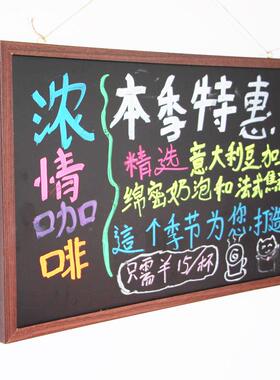 浓情咖啡
本季特惠
精选意大利豆加
绵密奶泡和法式焦
這个季节为您打造
只需¥15/杯